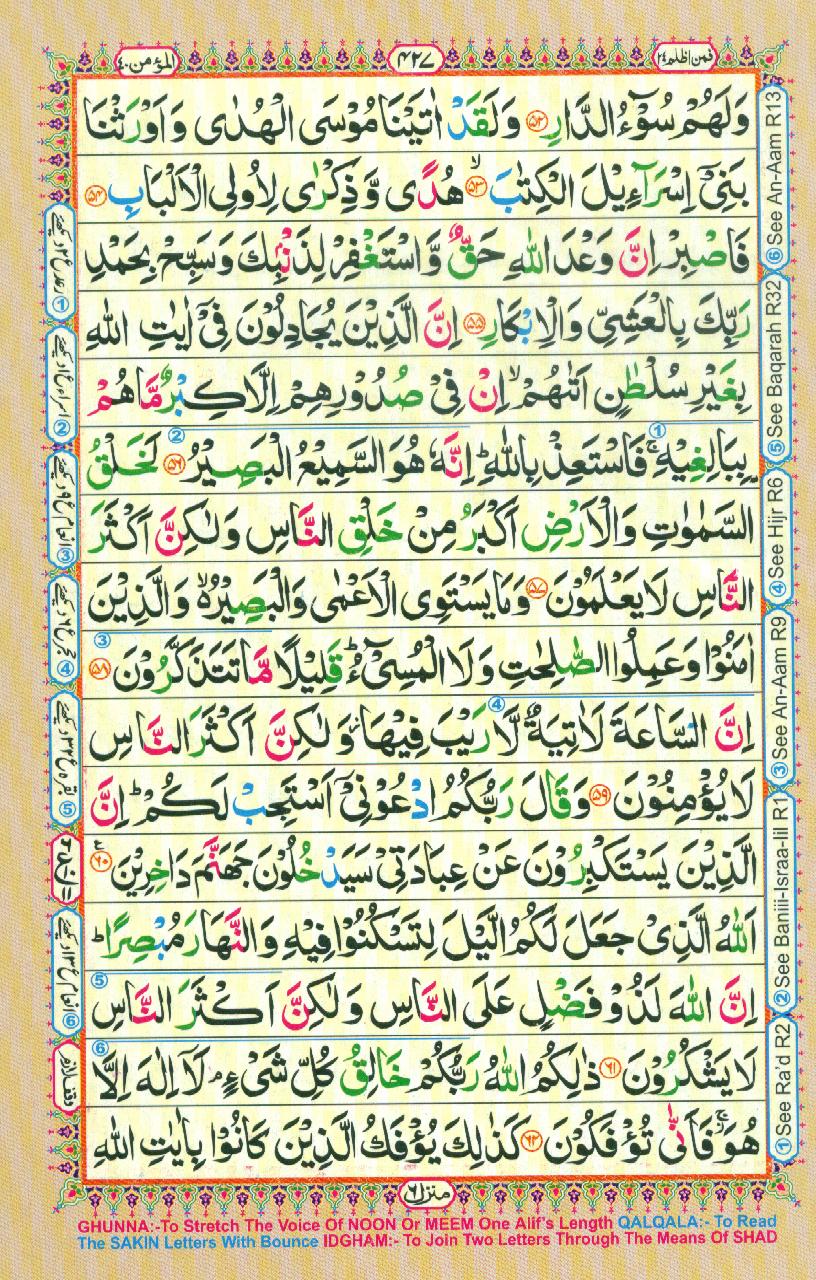 فمن اظلم ٢٤
٤٢٧
المؤمن ٤٠
وَلَهُمْ سُوْٓءُ الدَّارِ ﴿۵۲﴾ وَلَقَدْ اٰتَيْنَا مُوْسَى الْهُدٰى وَاَوْرَثْنَا
بَنِيْٓ اِسْرَآءِيْلَ الْكِتٰبَ ﴿۵۳﴾ۙ هُدًى وَّذِكْرٰى لِاُولِى الْاَلْبَابِ ﴿۵۴﴾
فَاصْبِرْ اِنَّ وَعْدَ اللّٰهِ حَقٌّ وَّاسْتَغْفِرْ لِذَنْۢبِكَ وَسَبِّحْ بِحَمْدِ
رَبِّكَ بِالْعَشِيِّ وَالْاِبْكَارِ ﴿۵۵﴾ اِنَّ الَّذِيْنَ يُجَادِلُوْنَ فِيْٓ اٰيٰتِ اللّٰهِ
بِغَيْرِ سُلْطٰنٍ اَتٰىهُمْ ۙ اِنْ فِيْ صُدُوْرِهِمْ اِلَّا كِبْرٌ مَّا هُمْ
بِبَالِغِيْهِ ۚ فَاسْتَعِذْ بِاللّٰهِ ؕ اِنَّهٗ هُوَ السَّمِيْعُ الْبَصِيْرُ ﴿۵۶﴾ لَخَلْقُ
السَّمٰوٰتِ وَالْاَرْضِ اَكْبَرُ مِنْ خَلْقِ النَّاسِ وَلٰكِنَّ اَكْثَرَ
النَّاسِ لَا يَعْلَمُوْنَ ﴿۵۷﴾ وَمَا يَسْتَوِى الْاَعْمٰى وَالْبَصِيْرُ ۙ۬ وَالَّذِيْنَ
اٰمَنُوْا وَعَمِلُوا الصّٰلِحٰتِ وَلَا الْمُسِيْٓءُ ؕ قَلِيْلًا مَّا تَتَذَكَّرُوْنَ ﴿۵۸﴾
اِنَّ السَّاعَةَ لَاٰتِيَةٌ لَّا رَيْبَ فِيْهَا وَلٰكِنَّ اَكْثَرَ النَّاسِ
لَا يُؤْمِنُوْنَ ﴿۵۹﴾ وَقَالَ رَبُّكُمُ ادْعُوْنِيْٓ اَسْتَجِبْ لَكُمْ ؕ اِنَّ
الَّذِيْنَ يَسْتَكْبِرُوْنَ عَنْ عِبَادَتِيْ سَيَدْخُلُوْنَ جَهَنَّمَ دَاخِرِيْنَ ﴿۶۰﴾
اَللّٰهُ الَّذِيْ جَعَلَ لَكُمُ الَّيْلَ لِتَسْكُنُوْا فِيْهِ وَالنَّهَارَ مُبْصِرًا ؕ
اِنَّ اللّٰهَ لَذُوْ فَضْلٍ عَلَى النَّاسِ وَلٰكِنَّ اَكْثَرَ النَّاسِ
لَا يَشْكُرُوْنَ ﴿۶۱﴾ ذٰلِكُمُ اللّٰهُ رَبُّكُمْ خَالِقُ كُلِّ شَيْءٍ ۘ لَآ اِلٰهَ اِلَّا
هُوَ ۚؗ فَاَنّٰى تُؤْفَكُوْنَ ﴿۶۲﴾ كَذٰلِكَ يُؤْفَكُ الَّذِيْنَ كَانُوْا بِاٰيٰتِ اللّٰهِ
منزل ٦
① See Ra'd R2
② See Baniii-Israa-Iil R1
③ See An-Aam R9
④ See Hijr R6
⑤ See Baqarah R32
⑥ See An-Aam R13
GHUNNA:-To Stretch The Voice Of NOON Or MEEM One Alif's Length QALQALA:- To Read
The SAKIN Letters With Bounce IDGHAM:- To Join Two Letters Through The Means Of SHAD